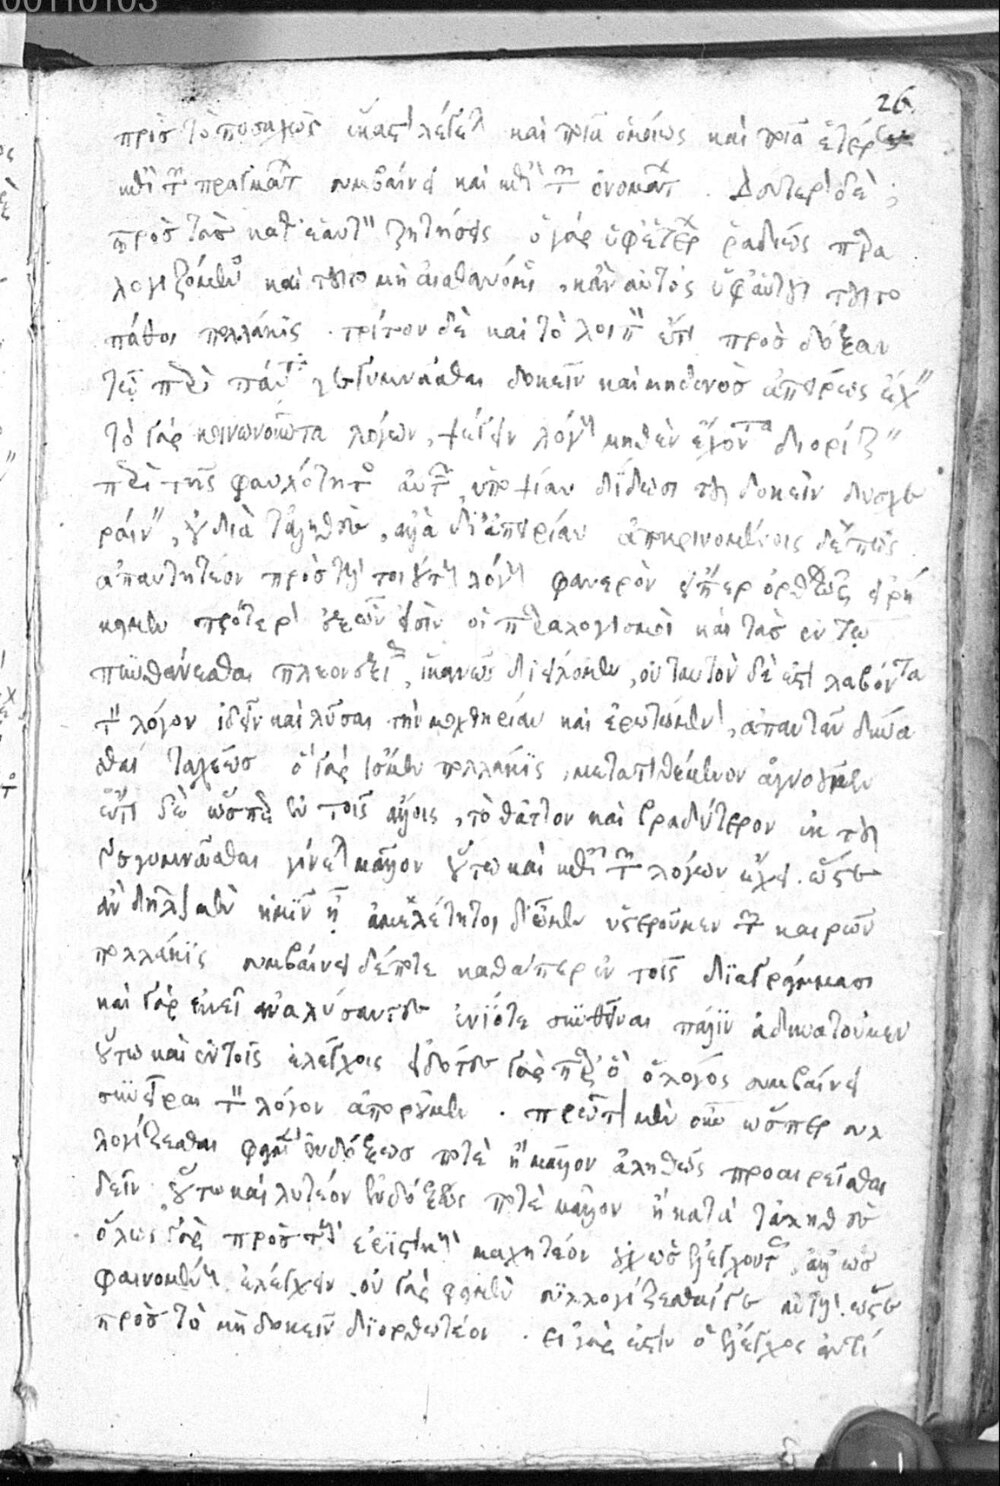 00110103
26
πρὸς τὸ ποσαχῶς ἕκαστον λέγεται καὶ ποῖα ὁμοίως καὶ ποῖα ἑτέρως
καὶ ἐπὶ τῶν πραγμάτων συμβαίνει καὶ ἐπὶ τῶν ὀνομάτων. Δεύτερον δὲ
πρὸς τὰς καθ' ἑαυτὸν ζητήσεις ὁ γὰρ ὑφ' ἑτέρου ῥαδίως παρα
λογιζόμενος καὶ τοῦτο μὴ αἰσθανόμενος, κἂν αὐτὸς ὑφ' αὑτοῦ τοῦτο
πάθοι πολλάκις. τρίτον δὲ καὶ τὸ λοιπὸν ἔτι πρὸς δόξαν
τῷ περὶ πάντα γεγυμνάσθαι δοκεῖν καὶ μηδενὸς ἀπείρως ἔχειν
τὸ γὰρ κοινωνοῦντα λόγων, ψέγειν λόγους μηδὲν ἔχοντα διορίζειν
περὶ τῆς φαυλότητος αὐτῶν ὑποψίαν δίδωσι τοῦ δοκεῖν δυσχε
ραίνειν, οὐ διὰ τἀληθὲς, ἀλλὰ δι' ἀπειρίαν ἀποκρινομένοις δὲ πῶς
ἀπαντητέον πρὸς τοὺς τοιούτους λόγους φανερὸν εἴπερ ὀρθῶς εἰρή
καμεν πρότερον ἐξ ὧν εἰσὶν οἱ παραλογισμοὶ καὶ τὰς ἐν τῷ
πυνθάνεσθαι πλεονεξίας ἱκανῶς διείλομεν, οὐ ταυτὸν δὲ ἐστὶ λαβόντα
τὸν λόγον ἰδεῖν καὶ λῦσαι τὴν μοχθηρίαν καὶ ἐρωτώμενον, ἀπαντᾶν δύνα
σθαι ταχέως ὃ γὰρ ἴσμεν πολλάκις, μετατιθέμενον ἀγνοοῦμεν
ἔτι δὲ ὥσπερ ἐν τοῖς ἄλλοις, τὸ θᾶττον καὶ βραδύτερον ἐκ τοῦ
γεγυμνᾶσθαι γίνεται μᾶλλον οὕτω καὶ ἐπὶ τῶν λόγων ἔχει. ὥστε
ἂν δῆλον μὲν ἡμῖν ᾖ ἀμελέτητοι δ' ὦμεν ὑστεροῦμεν τῶν καιρῶν
πολλάκις συμβαίνει δέ ποτε καθάπερ ἐν τοῖς διαγράμμασι
καὶ γὰρ ἐκεῖ ἀναλύσαντες ἐνίοτε συνθεῖναι πάλιν ἀδυνατοῦμεν
οὕτω καὶ ἐν τοῖς ἐλέγχοις εἰδότες γὰρ παρ' ὃ ὁ λόγος συμβαίνει
συνεῖραι τὸν λόγον ἀποροῦμεν. πρῶτον μὲν οὖν ὥσπερ συλ
λογίζεσθαι φαμὲν ἐνδόξως ποτὲ ἢ μᾶλλον ἀληθῶς προαιρεῖσθαι
δεῖν οὕτω καὶ λυτέον ἐνδόξως ποτὲ μᾶλλον ἢ κατὰ τἀληθὲς
ὅλως γὰρ πρὸς τοὺς ἐριστικοὺς μαχητέον οὐχ ὡς ἐλέγχοντας, ἀλλ' ὡς
φαινομένους ἐλέγχειν οὐ γὰρ φαμὲν συλλογίζεσθαί γε αὐτούς. ὥστε
πρὸς τὸ μὴ δοκεῖν διορθωτέον. εἰ γάρ ἐστιν ὁ ἔλεγχος ἀντί